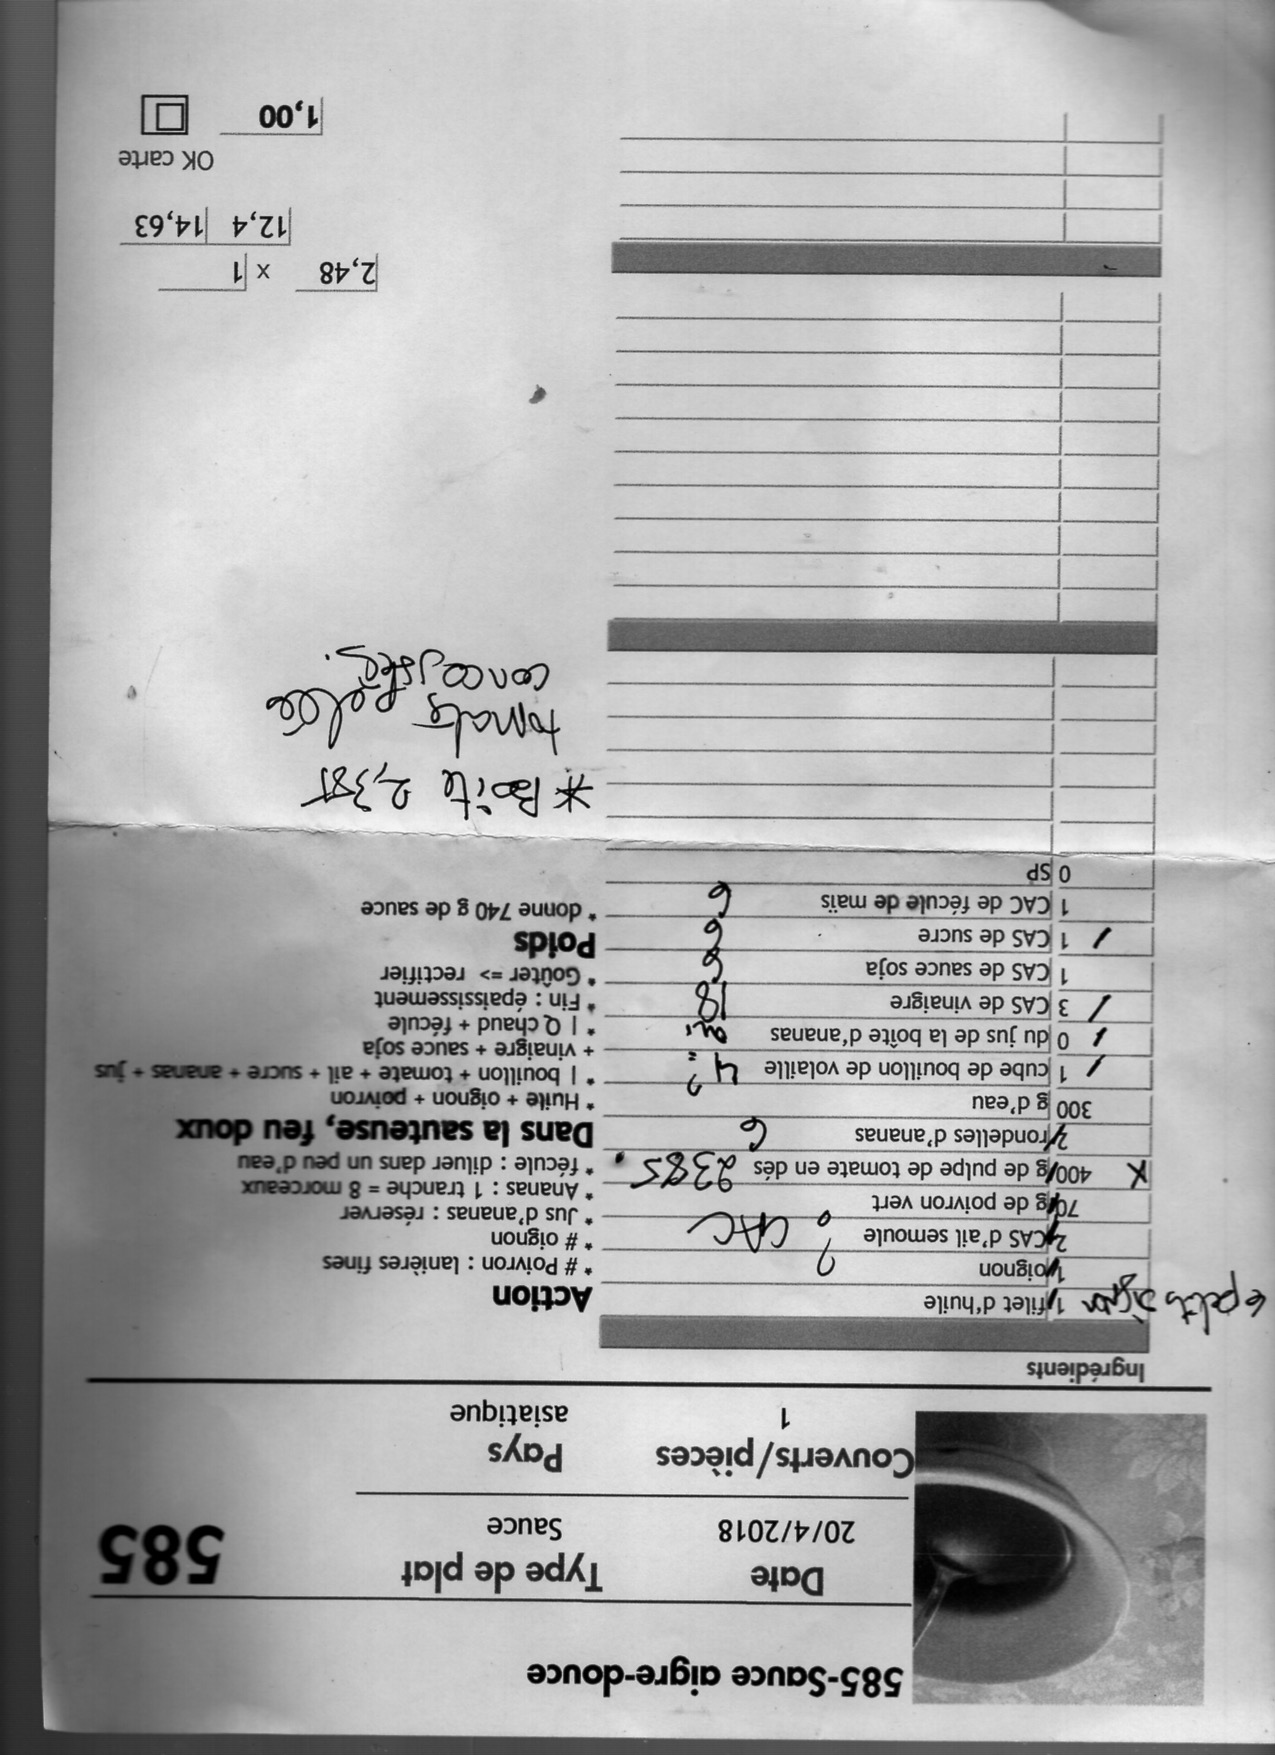 585-Sauce aigre-douce
Date
Type de plat
585
20/4/2018
Sauce
Couverts/pièces
Pays
1
asiatique
Ingrédients
6 petits
1 filet d'huile
1 oignon
?
2 CAS d'ail semoule
CAC
70 g de poivron vert
X 400 g de pulpe de tomate en dés 2385
rondelles d'ananas 6
300 g d'eau
1 cube de bouillon de volaille 4 ?
0 du jus de la boîte d'ananas oui
3 CAS de vinaigre 18
1 CAS de sauce soja 6
1 CAS de sucre 6
1 CAC de fécule de maïs 6
0 SP
Action
* # Poivron : lanières fines
* # oignon
* Jus d'ananas : réserver
* Ananas : 1 tranche = 8 morceaux
* fécule : diluer dans un peu d'eau
Dans la sauteuse, feu doux
* Huile + oignon + poivron
* | bouillon + tomate + ail + sucre + ananas + jus
+ vinaigre + sauce soja
* | Q chaud + fécule
* Fin : épaississement
* Goûter => rectifier
Poids
* donne 740 g de sauce
* Boîte 2,385
tomate pelée
concassées.
2,48 x 1
12,4 14,63
OK carte
1,00